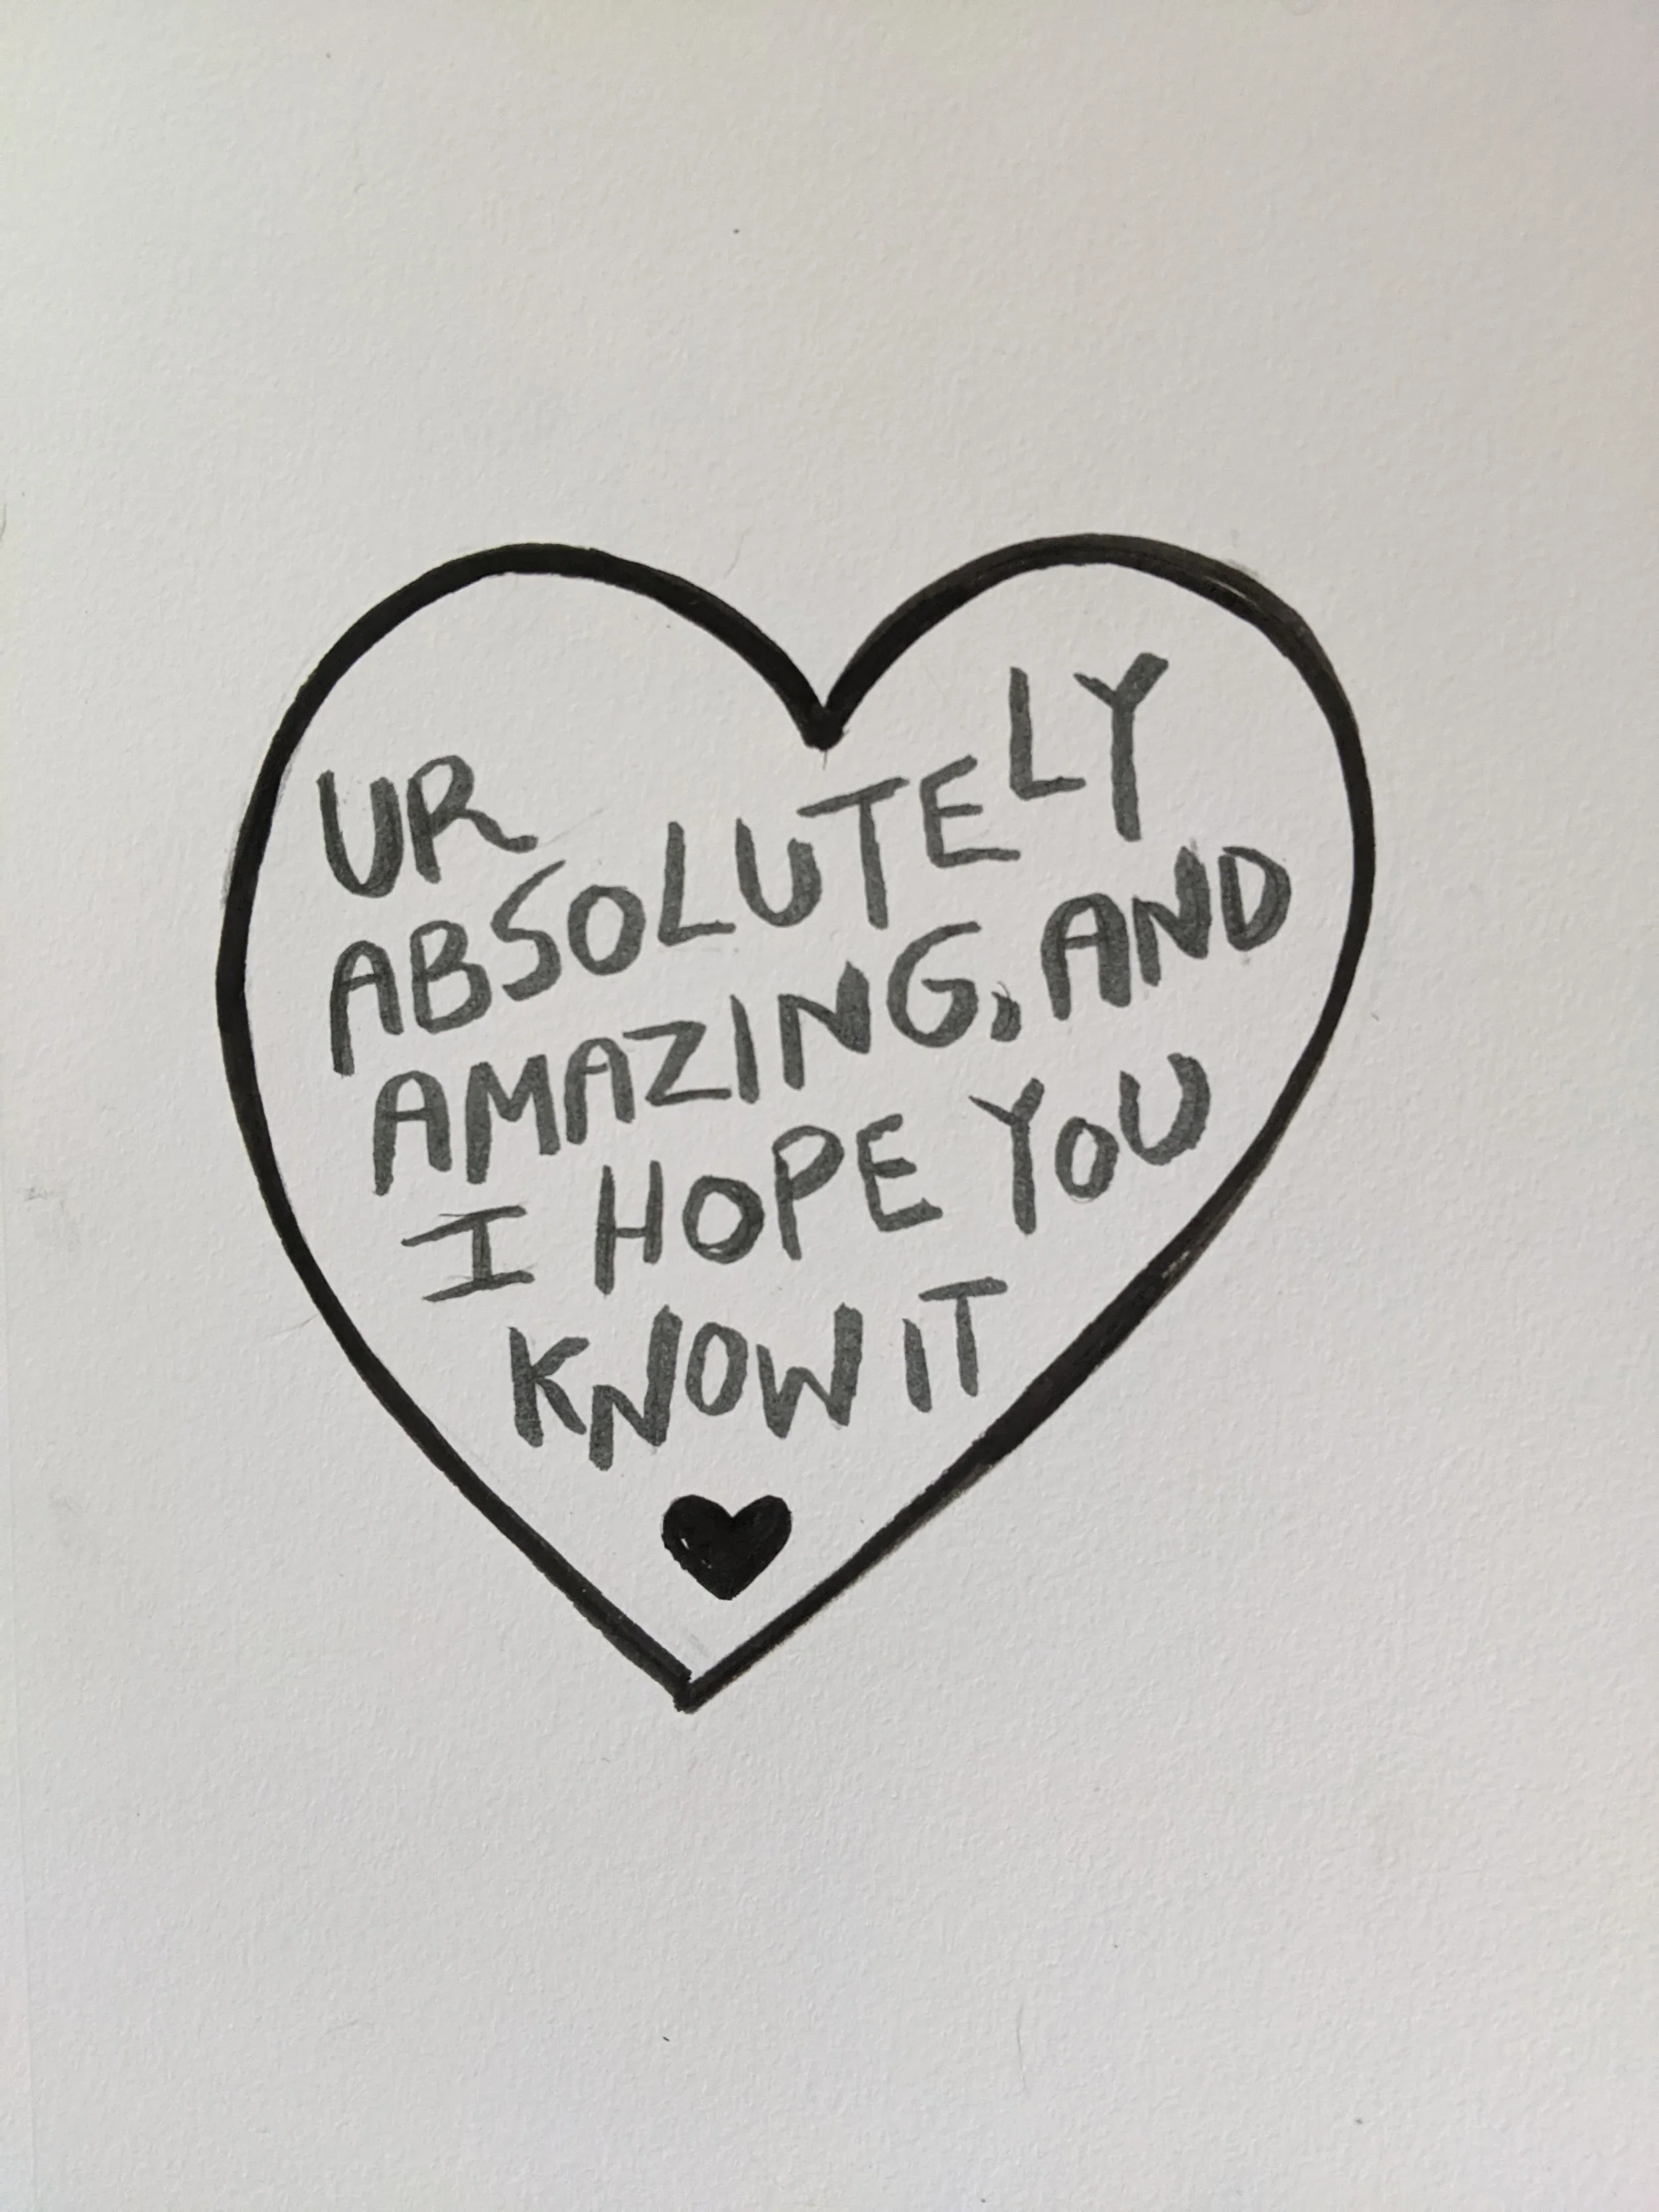 UR
ABSOLUTELY
AMAZING, AND
I HOPE YOU
KNOW IT